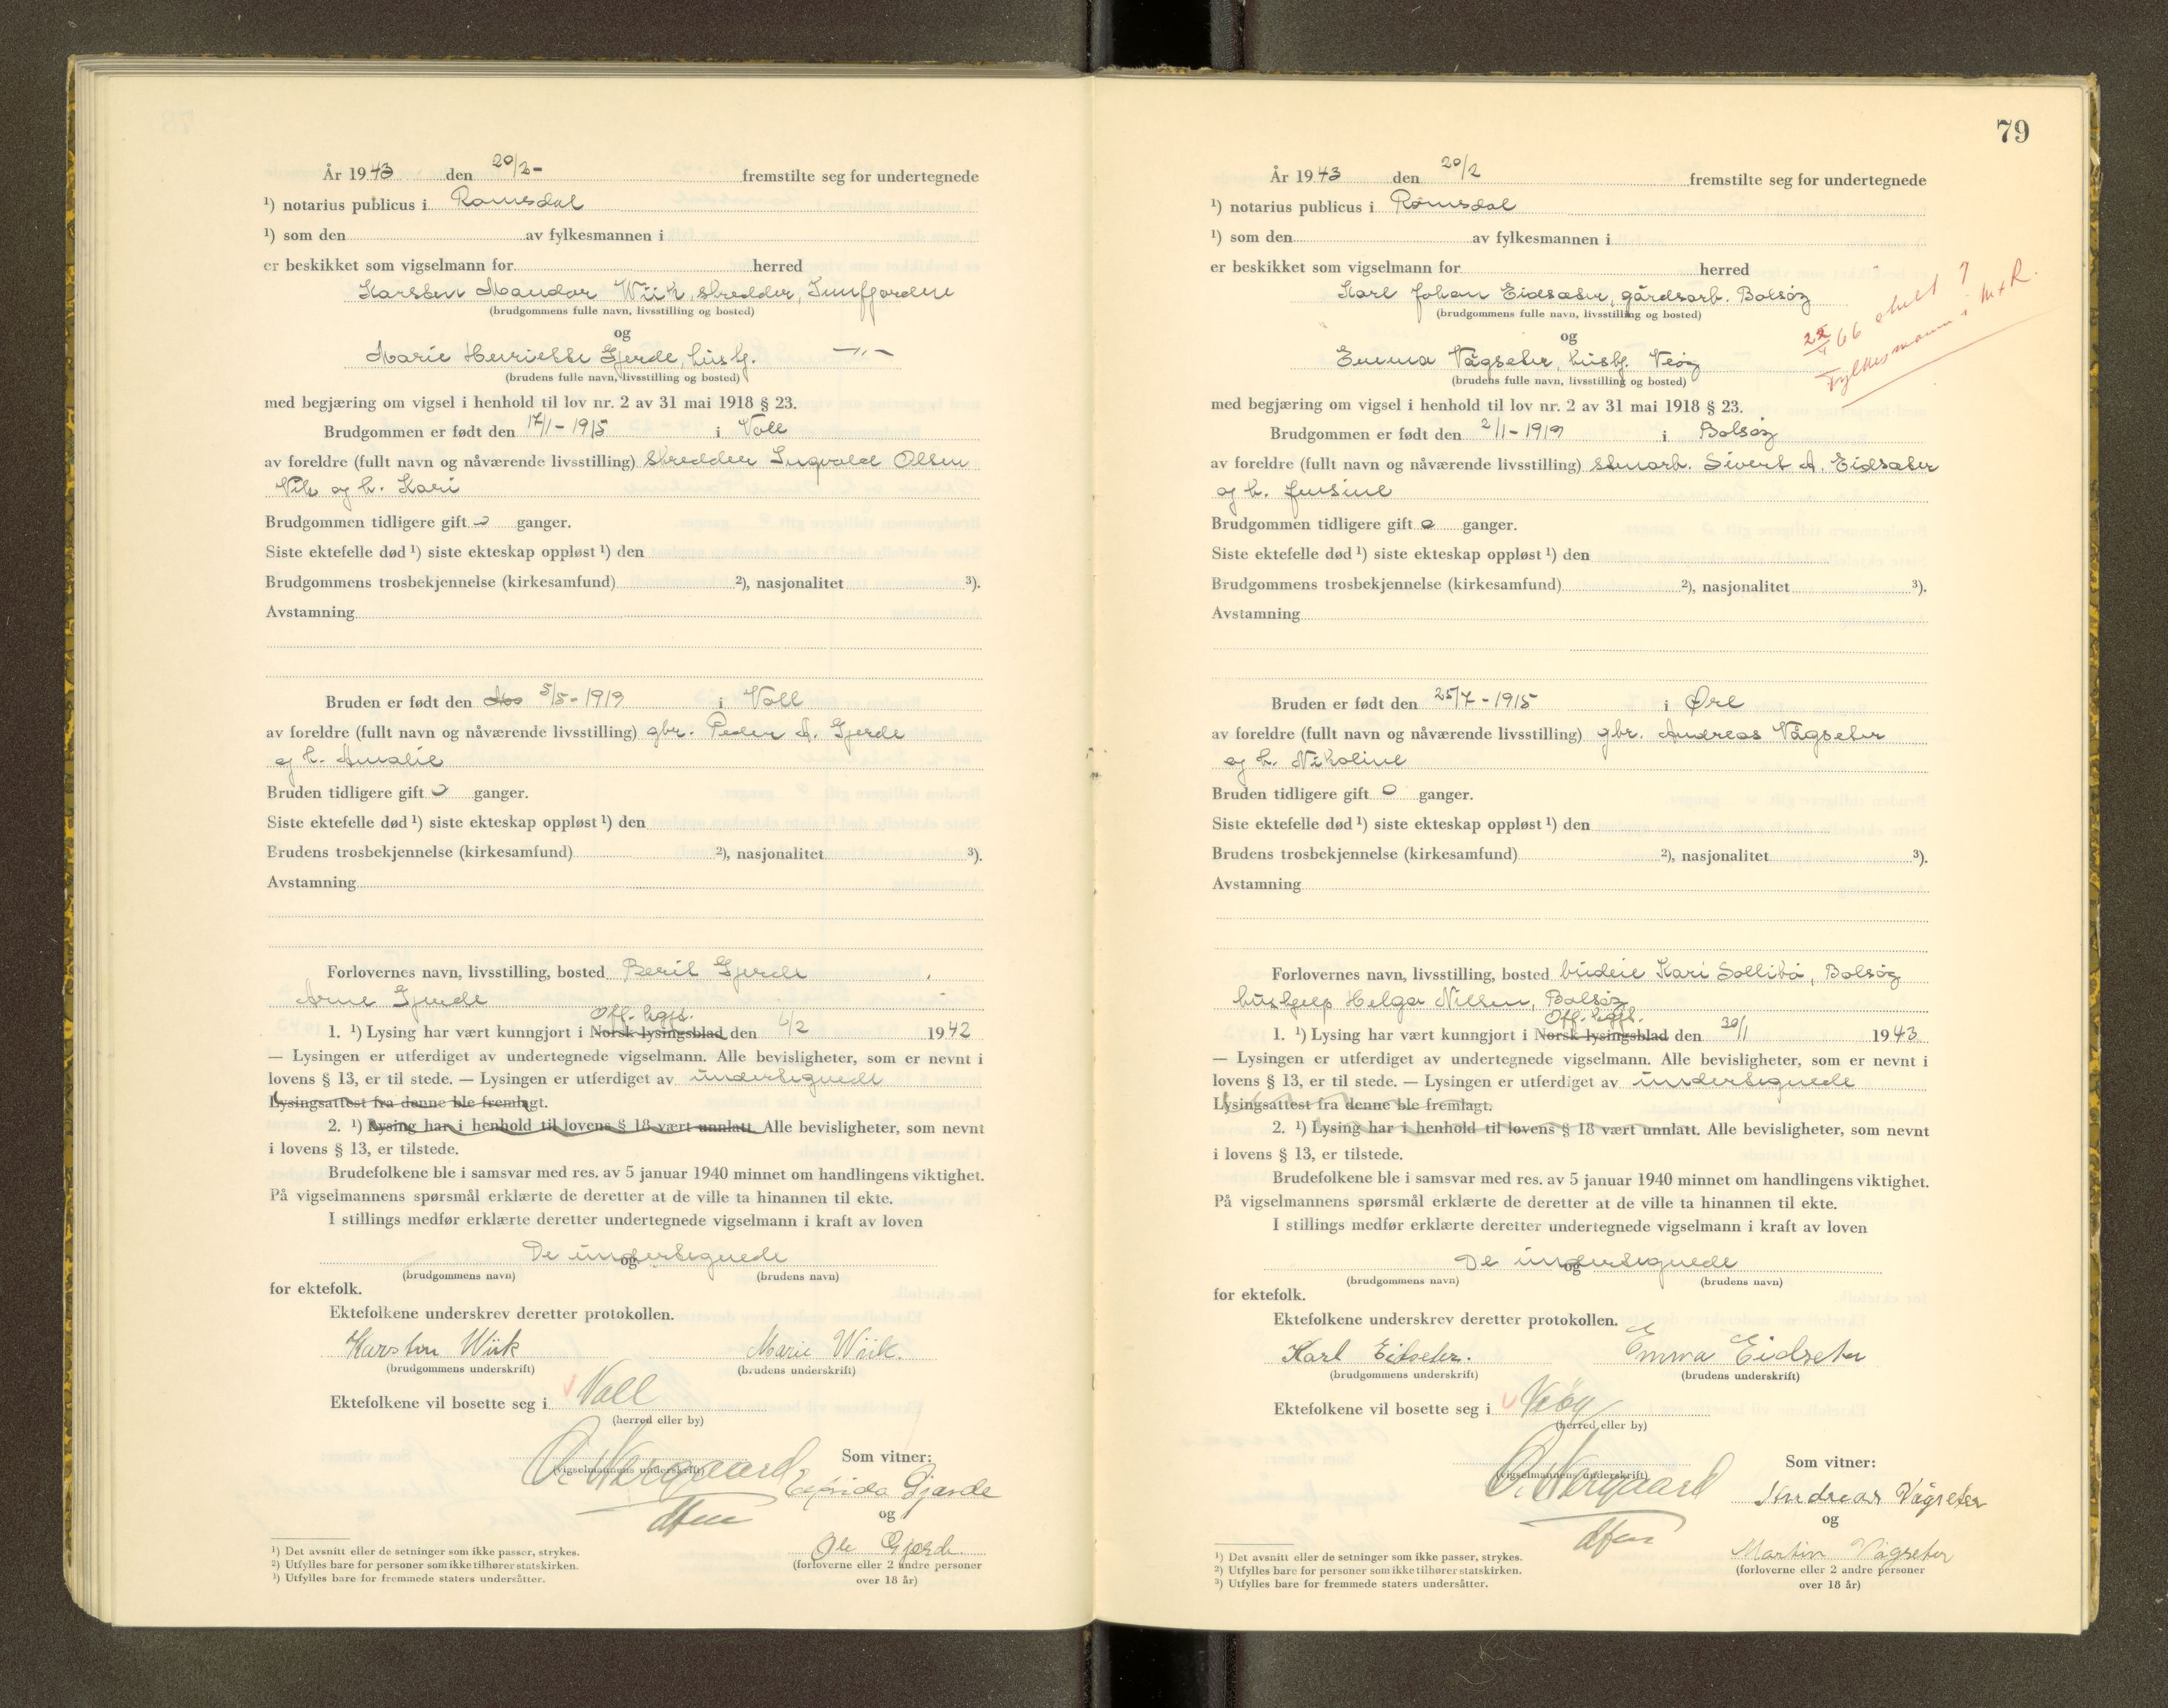 År 1943 den 20/2- fremstilte seg for undertegnede
¹) notarius publicus i Romsdal
¹) som den av fylkesmannen i
er beskikket som vigselmann for herred
Karsten Mandor Wiik, skredder, Innfjorden
(brudgommens fulle navn, livsstilling og bosted)
og
Marie Henriette Gjerde, husbg. —"—
(brudens fulle navn, livsstilling og bosted)
med begjæring om vigsel i henhold til lov nr. 2 av 31 mai 1918 § 23.
Brudgommen er født den 17/1-1915 i Voll
av foreldre (fullt navn og nåværende livsstilling) skredder Ingvald Olsen
Vik og h. Kari
Brudgommen tidligere gift 0 ganger.
Siste ektefelle død ¹) siste ekteskap oppløst ¹) den
Brudgommens trosbekjennelse (kirkesamfund) ²), nasjonalitet ³).
Avstamning
Bruden er født den 5/5-1919 i Voll
av foreldre (fullt navn og nåværende livsstilling) gbr. Peder A. Gjerde
og h. Amalie
Bruden tidligere gift 0 ganger.
Siste ektefelle død ¹) siste ekteskap oppløst ¹) den
Brudens trosbekjennelse (kirkesamfund) ²), nasjonalitet ³).
Avstamning
Forlovernes navn, livsstilling, bosted Berit Gjerde
Arne Gjerde
Off. kgjs.
1. ¹) Lysing har vært kunngjort i Norsk lysingsblad den 6/2 1942
— Lysingen er utferdiget av undertegnede vigselmann. Alle bevisligheter, som er nevnt i
lovens § 13, er til stede. — Lysingen er utferdiget av undertegnede
Lysingsattest fra denne ble fremlagt.
2. ¹) Lysing har i henhold til lovens § 18 vært unnlatt. Alle bevisligheter, som nevnt
i lovens § 13, er tilstede.
Brudefolkene ble i samsvar med res. av 5 januar 1940 minnet om handlingens viktighet.
På vigselmannens spørsmål erklærte de deretter at de ville ta hinannen til ekte.
I stillings medfør erklærte deretter undertegnede vigselmann i kraft av loven
De undertegnede
og
(brudgommens navn) (brudens navn)
for ektefolk.
Ektefolkene underskrev deretter protokollen.
Karsten Wiik Marie Wiik.
(brudgommens underskrift) (brudens underskrift)
Ektefolkene vil bosette seg i Voll
(herred eller by)
Som vitner:
O. Norgaard
(vigselmannens underskrift)
Gjærde
dfm
og
Ole Gjærde
(forloverne eller 2 andre personer
over 18 år)
¹) Det avsnitt eller de setninger som ikke passer, strykes.
²) Utfylles bare for personer som ikke tilhører statskirken.
³) Utfylles bare for fremmede staters undersåtter.
79
År 1943 den 20/2 fremstilte seg for undertegnede
¹) notarius publicus i Romsdal
¹) som den av fylkesmannen i
er beskikket som vigselmann for herred
Karl Johan Eidsæter, gårdsarb. Bolsøy
(brudgommens fulle navn, livsstilling og bosted)
og
22/4 66 skilt ?
Fylkesmann i M+R.
Emma Vågseter, husbg. Veøy
(brudens fulle navn, livsstilling og bosted)
med begjæring om vigsel i henhold til lov nr. 2 av 31 mai 1918 § 23.
Brudgommen er født den 2/1-1919 i Bolsøy
av foreldre (fullt navn og nåværende livsstilling) stenarb. Sivert A. Eidsæter
og h. Jensine
Brudgommen tidligere gift 0 ganger.
Siste ektefelle død ¹) siste ekteskap oppløst ¹) den
Brudgommens trosbekjennelse (kirkesamfund) ²), nasjonalitet ³).
Avstamning
Bruden er født den 25/7-1915 i Øre
av foreldre (fullt navn og nåværende livsstilling) gbr. Andreas Vågseter
og h. Nikoline
Bruden tidligere gift 0 ganger.
Siste ektefelle død ¹) siste ekteskap oppløst ¹) den
Brudens trosbekjennelse (kirkesamfund) ²), nasjonalitet ³).
Avstamning
Forlovernes navn, livsstilling, bosted budeie Kari Sollibø, Bolsøy
hushjelp Helga Nilsen, Bolsøy
Off. kgjs.
1. ¹) Lysing har vært kunngjort i Norsk lysingsblad den 30/1 1943
— Lysingen er utferdiget av undertegnede vigselmann. Alle bevisligheter, som er nevnt i
lovens § 13, er til stede. — Lysingen er utferdiget av undertegnede
Lysingsattest fra denne ble fremlagt.
2. ¹) Lysing har i henhold til lovens § 18 vært unnlatt. Alle bevisligheter, som nevnt
i lovens § 13, er tilstede.
Brudefolkene ble i samsvar med res. av 5 januar 1940 minnet om handlingens viktighet.
På vigselmannens spørsmål erklærte de deretter at de ville ta hinannen til ekte.
I stillings medfør erklærte deretter undertegnede vigselmann i kraft av loven
De undertegnede
og
(brudgommens navn) (brudens navn)
for ektefolk.
Ektefolkene underskrev deretter protokollen.
Karl Eidseter. Emma Eidseter
(brudgommens underskrift) (brudens underskrift)
Ektefolkene vil bosette seg i Veøy
(herred eller by)
Som vitner:
O. Norgaard
(vigselmannens underskrift)
Andreas Vågseter
dfm
og
Martin Vågseter
(forloverne eller 2 andre personer
over 18 år)
¹) Det avsnitt eller de setninger som ikke passer, strykes.
²) Utfylles bare for personer som ikke tilhører statskirken.
³) Utfylles bare for fremmede staters undersåtter.